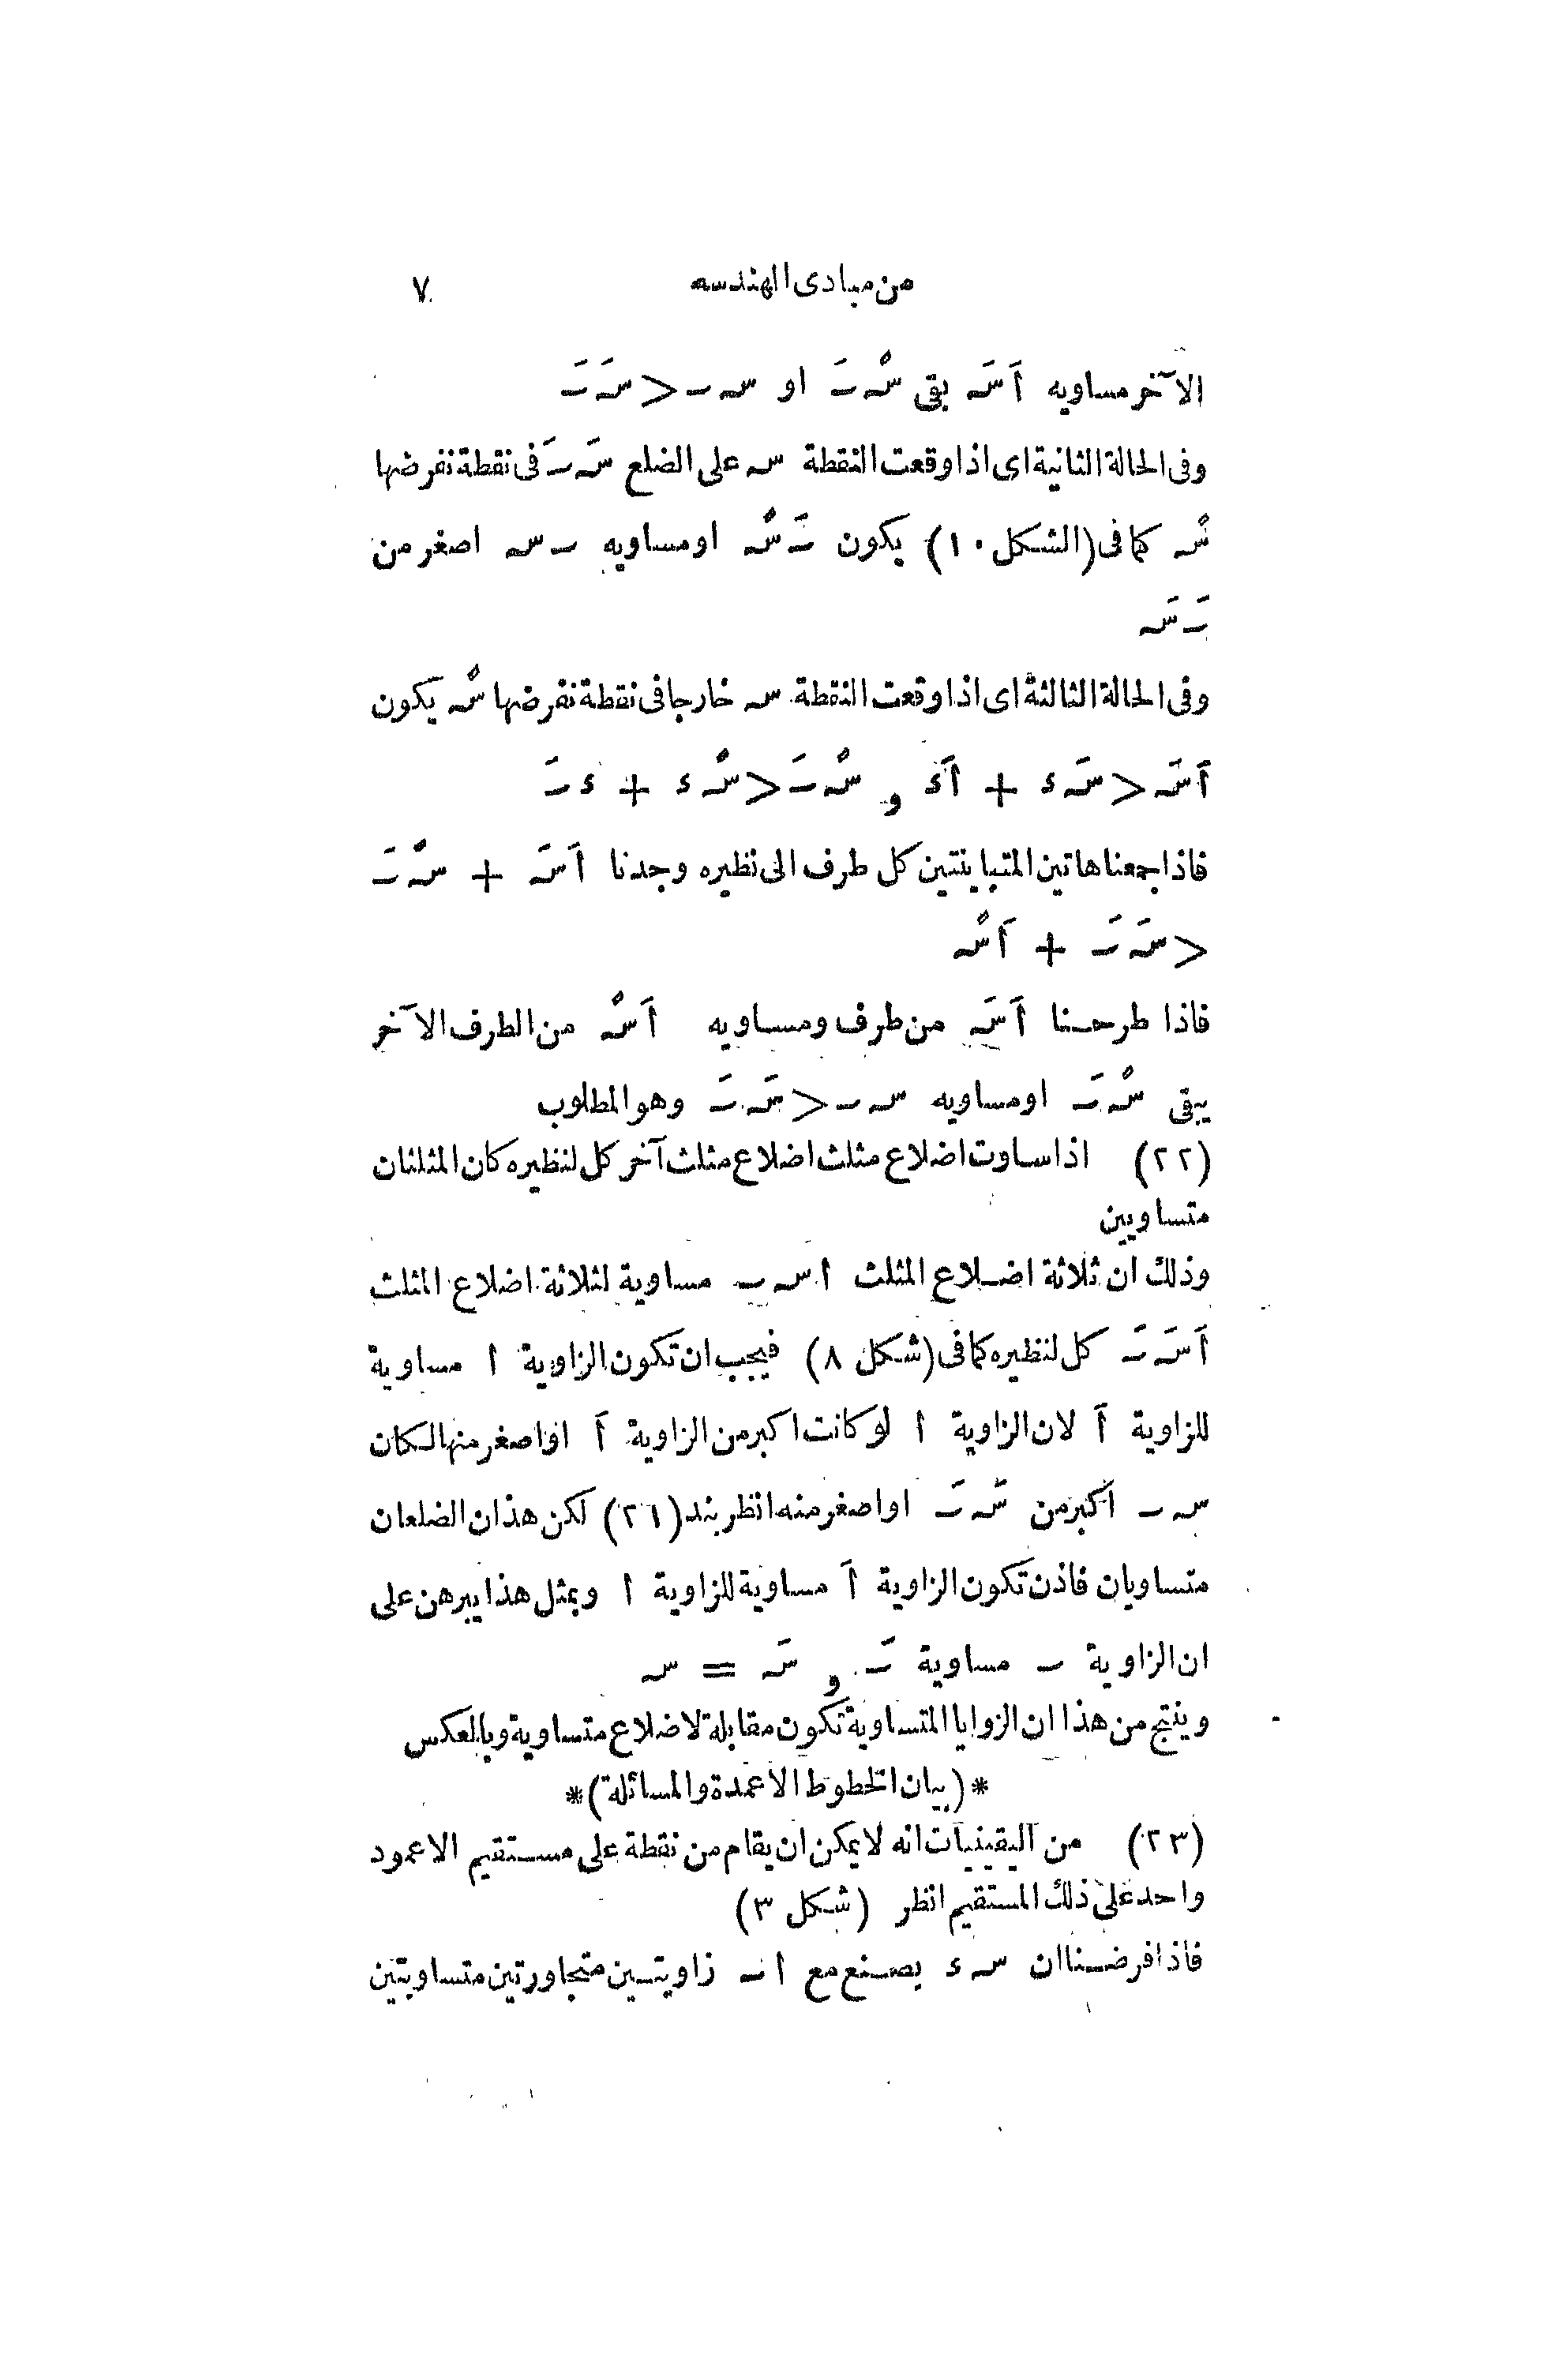 من مبادى الهندسه ٧
الآخر مساويه اَ سَـ بقى سْـ ـَ او سـ ـ < سَـ ـَ
وفى الحالة الثانية اى اذا وقعت النقطة سـ على الضلع سَـ ـَ فى نقطة نفرضها
سْـ كما فى (الشكل ١٠) يكون ـَ سْـ او مساويه ـ سـ اصغر من
ـَ سَـ
وفى الحالة الثالثة اى اذا وقعت النقطة سـ خارجا فى نقطة نفرضها سْـ يكون
اَ سَـ < سَـ ء + اَ ء و سْـ ـَ < سْـ ء + ء ـَ
فاذا جمعنا هاتين المتباينتين كل طرف الى نظيره وجدنا اَ سَـ + سْـ ـَ
< سَـ ـَ + اَ سْـ
فاذا طرحنا اَ سَـ من طرف ومساويه اَ سْـ من الطرف الآخر
يبقى سْـ ـَ او مساويه سـ ـ < سَـ ـَ وهو المطلوب
(٢٢) اذا ساوت اضلاع مثلث اضلاع مثلث آخر كل لنظيره كان المثلثان
متساويين
وذلك ان ثلاثة اضلاع المثلث ا سـ ـ مساوية لثلاثة اضلاع المثلث
اَ سَـ ـَ كل لنظيره كما فى (شكل ٨) فيجب ان تكون الزاوية ا مساوية
للزاوية اَ لان الزاوية ا لو كانت اكبر من الزاوية اَ او اصغر منها لكان
سـ ـ اكبر من سَـ ـَ او اصغر منه انظر بند (٢١) لكن هذان الضلعان
متساويان فاذن تكون الزاوية اَ مساوية للزاوية ا وبمثل هذا يبرهن على
ان الزاوية ـ مساوية ـَ و سَـ = سـ
وينتج من هذا ان الزوايا المتساوية تكون مقابلة لاضلاع متساوية وبالعكس
*(بيان الخطوط الاعمدة والمسائلة)*
(٢٣) من اليقينيات انه لا يمكن ان يقام من نقطة على مستقيم الا عمود
واحد على ذلك المستقيم انظر (شكل ٣)
فاذا فرضنا ان سـ ء يصنع مع ا ـ زاويتين متجاورتين متساويتين